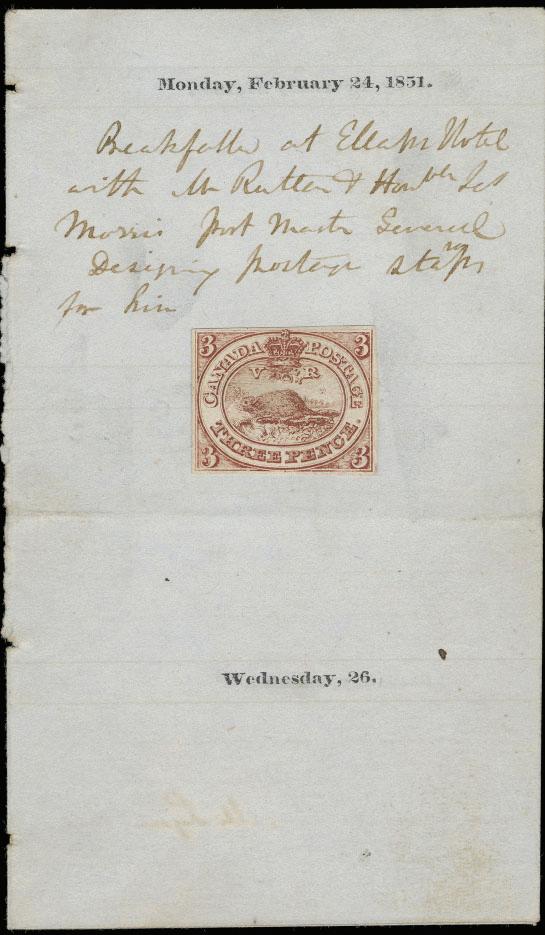 Monday, February 24, 1851.
Breakfast at Ellahs Hotel
with Mr Rutten & Honble Jas
Morris post Master General
Designing postage stamps
for him
3 3
CANADA POSTAGE
V R
THREE PENCE.
3 3
Wednesday, 26.